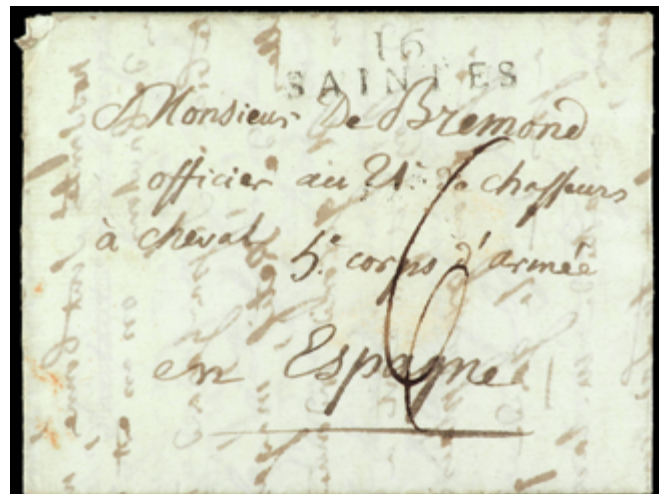 16
SAINTES
A Monsieur De Bremond
officier au 21e. de chasseurs
à cheval 5e. corps d'armée
en Espagne
6